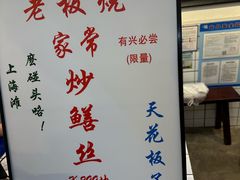 老板烧
家常炒鳝丝
有兴必尝
(限量)
上海滩
麽碰头咯！
天花板